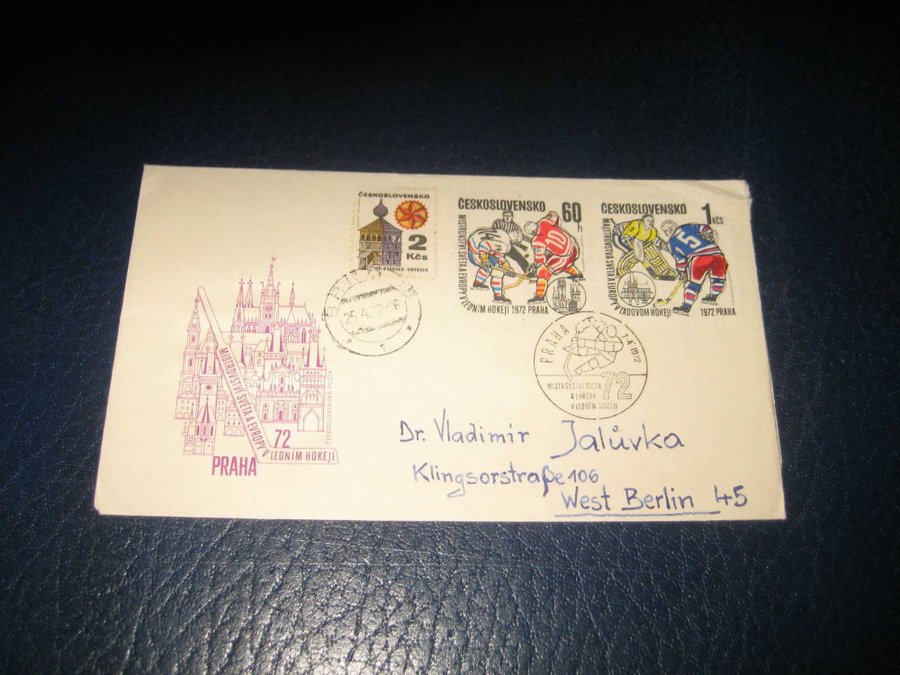 ČESKOSLOVENSKO
2
Kčs
ČESKOSLOVENSKO
60
h
MISTROVSTVÍ SVĚTA A EVROPY V
LEDNÍM HOKEJI 1972 PRAHA
10
ČESKOSLOVENSKO
1
KČS
MAJSTROVSTVÁ SVETA A EURÓPY
V ĽADOVOM HOKEJI 1972 PRAHA
15
PRAHA
7.4.1972
MISTROVSTVÍ SVĚTA
A EVROPY
V LEDNÍM HOKEJI
72
MISTROVSTVÍ SVĚTA A EVROPY V
72
LEDNÍM HOKEJI
PRAHA
Dr. Vladimír Jalůvka
Klingsorstraße 106
West Berlin 45